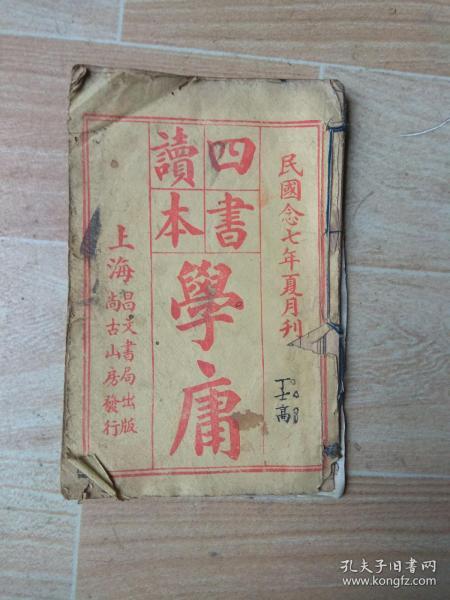 民國念七年夏月刊
四書
讀本
學庸
上海昌文書局出版
尚古山房發行
孔夫子旧书网
www.kongfz.com